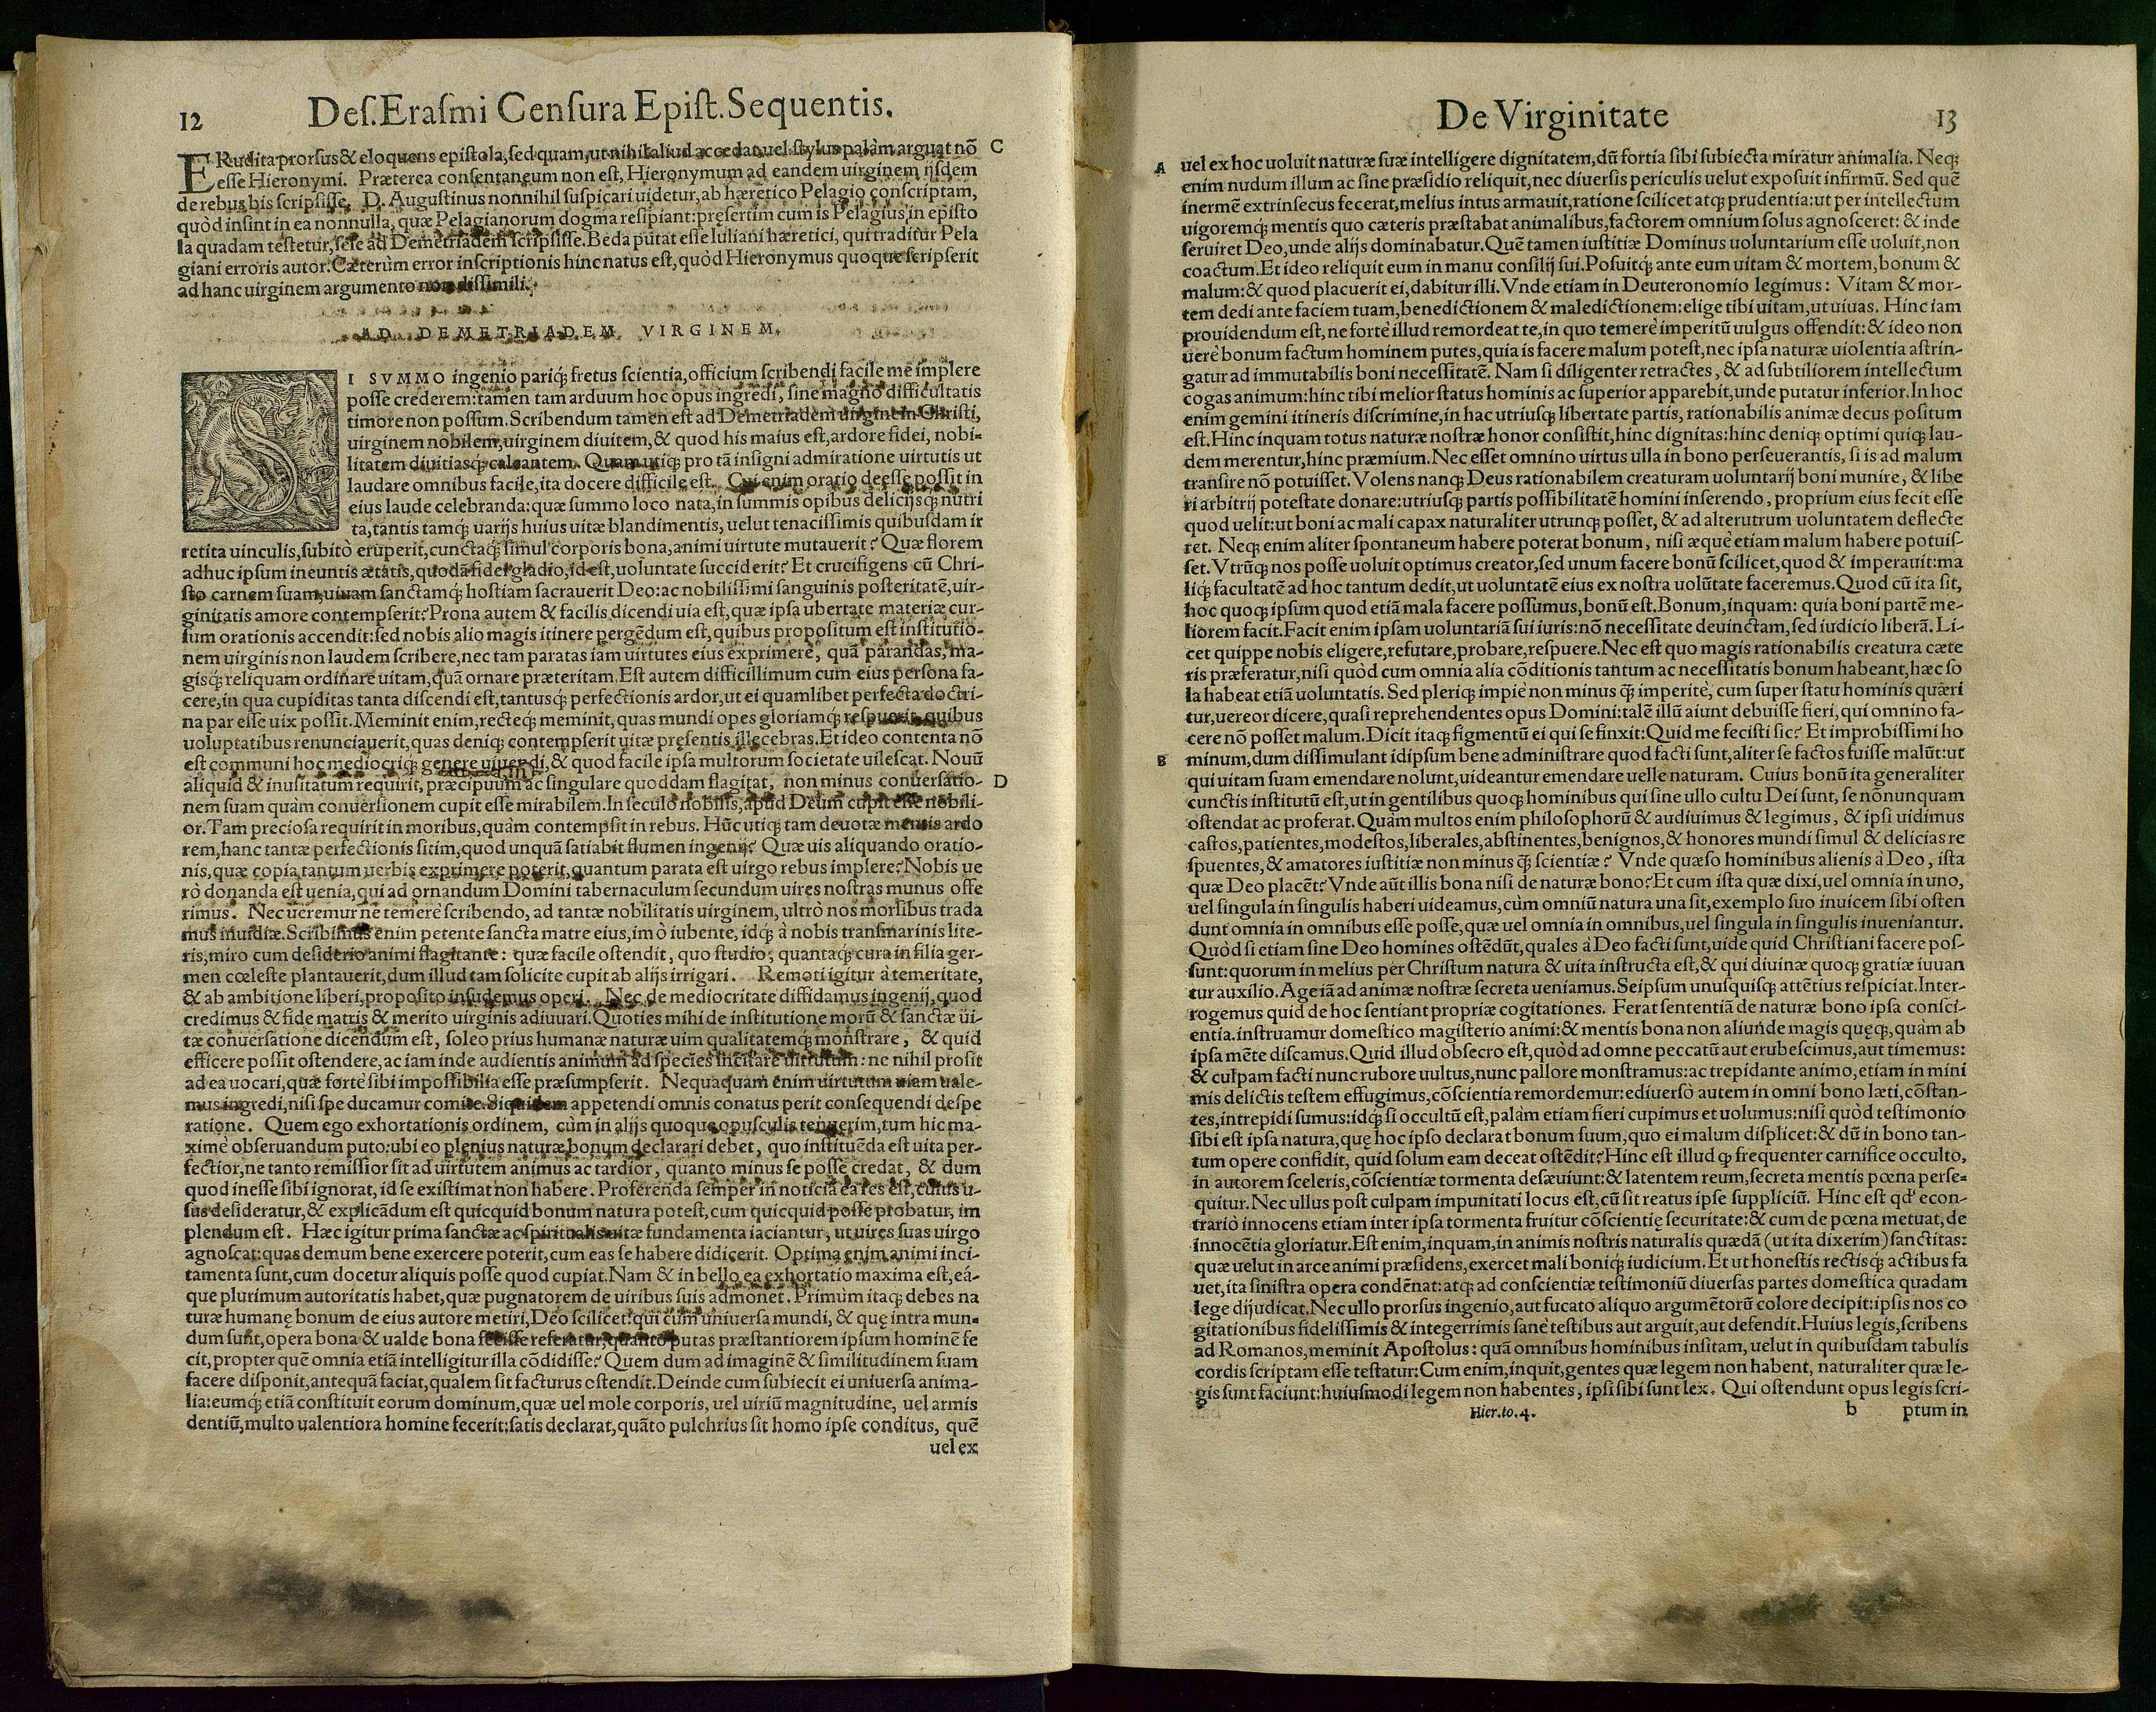 12
Deſ. Eraſmi Cenſura Epiſt. Sequentis.
ERudita prorſus & eloquens epiſtola, ſed quam, ut nihil aliud accedat, uel ſtylus palàm arguat nõ
C
eſſe Hieronymi. Præterea conſentaneum non eſt, Hieronymum ad eandem uirginem ijſdem
de rebus bis ſcripſiſſe. D. Auguſtinus nonnihil ſuſpicari uidetur, ab hæretico Pelagio conſcriptam,
quòd inſint in ea nonnulla, quæ Pelagianorum dogma reſipiant: pręſertim cum is Pelagius, in epiſto
la quadam teſtetur, ſeſe ad Demetriadem ſcripſiſſe. Beda putat eſſe Iuliani hæretici, qui traditur Pela
giani erroris autor. Cæterùm error inſcriptionis hinc natus eſt, quòd Hieronymus quoque ſcripſerit
ad hanc uirginem argumento non diſſimili.
AD DEMETRIADEM VIRGINEM.
SI SVMMO ingenio pariq́; fretus ſcientia, officium ſcribendi facile me implere
poſſe crederem: tamen tam arduum hoc opus ingredi, ſine magno difficultatis
timore non poſſum. Scribendum tamen eſt ad Demetriadem uirginem Chriſti,
uirginem nobilem, uirginem diuitem, & quod his maius eſt, ardore fidei, nobi-
litatem diuitiasq́; calcantem. Quam utiq; pro tã inſigni admiratione uirtutis ut
laudare omnibus facile, ita docere difficile eſt. Cui enim oratio deeſſe poſſit in
eius laude celebranda: quæ ſummo loco nata, in ſummis opibus delicijsq́; nutri
ta, tantis tamq́; uarijs huius uitæ blandimentis, uelut tenaciſſimis quibuſdam ir
retita uinculis, ſubitò eruperit, cunctaq́; ſimul corporis bona, animi uirtute mutauerit? Quæ florem
adhuc ipſum ineuntis ætatis, quodã fidei gladio, id eſt, uoluntate ſucciderit? Et crucifigens cũ Chri-
ſto carnem ſuam, uiuam ſanctamq́; hoſtiam ſacrauerit Deo: ac nobiliſſimi ſanguinis poſteritatẽ, uir-
ginitatis amore contempſerit? Prona autem & facilis dicendi uia eſt, quæ ipſa ubertate materiæ cur-
ſum orationis accendit: ſed nobis alio magis itinere pergẽdum eſt, quibus propoſitum eſt inſtitutio-
nem uirginis non laudem ſcribere, nec tam paratas iam uirtutes eius exprimere, quã parandas, ma-
gisq́; reliquam ordinare uitam, quã ornare præteritam. Eſt autem difficillimum cum eius perſona fa-
cere, in qua cupiditas tanta diſcendi eſt, tantusq́; perfectionis ardor, ut ei quamlibet perfecta doctri-
na par eſſe uix poſſit. Meminit enim, recteq́; meminit, quas mundi opes gloriamq́; reſpuerit, quibus
uoluptatibus renunciauerit, quas deniq; contempſerit uitæ pręſentis illecebras. Et ideo contenta nõ
eſt communi hoc mediocriq́; genere uiuendi, & quod facile ipſa multorum ſocietate uileſcat. Nouũ
aliquid & inuſitatum requirit, præcipuum ac ſingulare quoddam flagitat, non minus conuerſatio-
D
nem ſuam quàm conuerſionem cupit eſſe mirabilem. In ſeculo nobilis, apud Deum cupit eſſe nobili-
or. Tam precioſa requirit in moribus, quàm contempſit in rebus. Hũc utiq; tam deuotæ mentis ardo
rem, hanc tantæ perfectionis ſitim, quod unquã ſatiabit flumen ingenij? Quæ uis aliquando oratio-
nis, quæ copia tantum uerbis exprimere poterit, quantum parata eſt uirgo rebus implere? Nobis ue
rò donanda eſt uenia, qui ad ornandum Domini tabernaculum ſecundum uires noſtras munus offe
rimus. Nec ueremur ne temerè ſcribendo, ad tantæ nobilitatis uirginem, ultrò nos morſibus trada
mus inuidiæ. Scribimus enim petente ſancta matre eius, imò iubente, idq́; à nobis tranſmarinis lite-
ris, miro cum deſiderio animi flagitante: quæ facile oſtendit, quo ſtudio, quantaq́; cura in filia ger-
men cœleſte plantauerit, dum illud tam ſolicite cupit ab alijs irrigari. Remoti igitur à temeritate,
& ab ambitione liberi, propoſito inſudemus operi. Nec de mediocritate diffidamus ingenij, quod
credimus & fide matris & merito uirginis adiuuari. Quoties mihi de inſtitutione morũ & ſanctæ ui-
tæ conuerſatione dicendum eſt, ſoleo prius humanæ naturæ uim qualitatemq́; monſtrare, & quid
efficere poſſit oſtendere, ac iam inde audientis animum ad ſpecies incitare uirtutum: ne nihil proſit
ad ea uocari, quæ fortè ſibi impoſſibilia eſſe præſumpſerit. Nequaquam enim uirtutum uiam uale-
mus ingredi, niſi ſpe ducamur comite. Siquidem appetendi omnis conatus perit conſequendi deſpe
ratione. Quem ego exhortationis ordinem, cùm in alijs quoque opuſculis tenuerim, tum hic ma-
ximè obſeruandum puto: ubi eo plenius naturæ bonum declarari debet, quo inſtituẽda eſt uita per-
fectior, ne tanto remiſſior ſit ad uirtutem animus ac tardior, quanto minus ſe poſſe credat, & dum
quod ineſſe ſibi ignorat, id ſe exiſtimat non habere. Proferenda ſemper in noticia ea res eſt, cuius u-
ſus deſideratur, & explicãdum eſt quicquid bonum natura poteſt, cum quicquid poſſe probatur, im
plendum eſt. Hæc igitur prima ſanctæ ac ſpiritualis uitæ fundamenta iaciantur, ut uires ſuas uirgo
agnoſcat: quas demum bene exercere poterit, cum eas ſe habere didicerit. Optima enim animi inci-
tamenta ſunt, cum docetur aliquis poſſe quod cupiat. Nam & in bello ea exhortatio maxima eſt, eá-
que plurimum autoritatis habet, quæ pugnatorem de uiribus ſuis admonet. Primùm itaq; debes na
turæ humanę bonum de eius autore metiri, Deo ſcilicet: qui cum uniuerſa mundi, & quę intra mun-
dum ſunt, opera bona & ualde bona feciſſe referatur, quanto putas præſtantiorem ipſum hominẽ fe
cit, propter quẽ omnia etiã intelligitur illa cõdidiſſe? Quem dum ad imaginẽ & ſimilitudinem ſuam
facere diſponit, antequã faciat, qualem ſit facturus oſtendit. Deinde cum ſubiecit ei uniuerſa anima-
lia: eumq́; etiã conſtituit eorum dominum, quæ uel mole corporis, uel uiriũ magnitudine, uel armis
dentiũ, multo ualentiora homine fecerit: ſatis declarat, quãto pulchrius ſit homo ipſe conditus, quẽ
uel ex
De Virginitate
13
A
uel ex hoc uoluit naturæ ſuæ intelligere dignitatem, dũ fortia ſibi ſubiecta miratur animalia. Neq;
enim nudum illum ac ſine præſidio reliquit, nec diuerſis periculis uelut expoſuit infirmũ. Sed quẽ
inermẽ extrinſecus fecerat, melius intus armauit, ratione ſcilicet atq; prudentia: ut per intellectum
uigoremq́; mentis quo cæteris præſtabat animalibus, factorem omnium ſolus agnoſceret: & inde
ſeruiret Deo, unde alijs dominabatur. Quẽ tamen iuſtitiæ Dominus uoluntarium eſſe uoluit, non
coactum. Et ideo reliquit eum in manu conſilij ſui. Poſuitq́; ante eum uitam & mortem, bonum &
malum: & quod placuerit ei, dabitur illi. Vnde etiam in Deuteronomio legimus: Vitam & mor-
tem dedi ante faciem tuam, benedictionem & maledictionem: elige tibi uitam, ut uiuas. Hinc iam
prouidendum eſt, ne fortè illud remordeat te, in quo temerè imperitũ uulgus offendit: & ideo non
uerè bonum factum hominem putes, quia is facere malum poteſt, nec ipſa naturæ uiolentia aſtrin-
gatur ad immutabilis boni neceſſitatẽ. Nam ſi diligenter retractes, & ad ſubtiliorem intellectum
cogas animum: hinc tibi melior ſtatus hominis ac ſuperior apparebit, unde putatur inferior. In hoc
enim gemini itineris diſcrimine, in hac utriuſq; libertate partis, rationabilis animæ decus poſitum
eſt. Hinc inquam totus naturæ noſtræ honor conſiſtit, hinc dignitas: hinc deniq; optimi quiq; lau-
dem merentur, hinc præmium. Nec eſſet omnino uirtus ulla in bono perſeuerantis, ſi is ad malum
tranſire nõ potuiſſet. Volens nanq; Deus rationabilem creaturam uoluntarij boni munire, & libe
ri arbitrij poteſtate donare: utriuſq; partis poſſibilitatẽ homini inſerendo, proprium eius fecit eſſe
quod uelit: ut boni ac mali capax naturaliter utrunq; poſſet, & ad alterutrum uoluntatem deflecte
ret. Neq; enim aliter ſpontaneum habere poterat bonum, niſi æquè etiam malum habere potuiſ-
ſet. Vtrũq; nos poſſe uoluit optimus creator, ſed unum facere bonũ ſcilicet, quod & imperauit: ma
liq́; facultatẽ ad hoc tantum dedit, ut uoluntatẽ eius ex noſtra uolũtate faceremus. Quod cũ ita ſit,
hoc quoq; ipſum quod etiã mala facere poſſumus, bonũ eſt. Bonum, inquam: quia boni partẽ me-
liorem facit. Facit enim ipſam uoluntariã ſui iuris: nõ neceſſitate deuinctam, ſed iudicio liberã. Li-
cet quippe nobis eligere, refutare, probare, reſpuere. Nec eſt quo magis rationabilis creatura cæte
ris præferatur, niſi quòd cum omnia alia cõditionis tantum ac neceſſitatis bonum habeant, hæc ſo
la habeat etiã uoluntatis. Sed pleriq; impiè non minus q̃ imperitè, cum ſuper ſtatu hominis quæri
tur, uereor dicere, quaſi reprehendentes opus Domini: talẽ illũ aiunt debuiſſe fieri, qui omnino fa-
cere nõ poſſet malum. Dicit itaq; figmentũ ei qui ſe finxit: Quid me feciſti ſic? Et improbiſſimi ho
B
minum, dum diſſimulant idipſum bene adminiſtrare quod facti ſunt, aliter ſe factos fuiſſe malũt: ut
qui uitam ſuam emendare nolunt, uideantur emendare uelle naturam. Cuius bonũ ita generaliter
cunctis inſtitutũ eſt, ut in gentilibus quoq; hominibus qui ſine ullo cultu Dei ſunt, ſe nõnunquam
oſtendat ac proferat. Quàm multos enim philoſophorũ & audiuimus & legimus, & ipſi uidimus
caſtos, patientes, modeſtos, liberales, abſtinentes, benignos, & honores mundi ſimul & delicias re
ſpuentes, & amatores iuſtitiæ non minus q̃ ſcientiæ? Vnde quæſo hominibus alienis à Deo, iſta
quæ Deo placẽt? Vnde aũt illis bona niſi de naturæ bono? Et cum iſta quæ dixi, uel omnia in uno,
uel ſingula in ſingulis haberi uideamus, cùm omniũ natura una ſit, exemplo ſuo inuicem ſibi oſten
dunt omnia in omnibus eſſe poſſe, quæ uel omnia in omnibus, uel ſingula in ſingulis inueniantur.
Quòd ſi etiam ſine Deo homines oſtẽdũt, quales à Deo facti ſunt, uide quid Chriſtiani facere poſ-
ſunt: quorum in melius per Chriſtum natura & uita inſtructa eſt, & qui diuinæ quoq; gratiæ iuuan
tur auxilio. Age iã ad animæ noſtræ ſecreta ueniamus. Seipſum unuſquiſq; attẽtius reſpiciat. Inter-
rogemus quid de hoc ſentiant propriæ cogitationes. Ferat ſententiã de naturæ bono ipſa conſci-
entia. inſtruamur domeſtico magiſterio animi: & mentis bona non aliunde magis quęq;, quàm ab
ipſa mẽte diſcamus. Quid illud obſecro eſt, quòd ad omne peccatũ aut erubeſcimus, aut timemus:
& culpam facti nunc rubore uultus, nunc pallore monſtramus: ac trepidante animo, etiam in mini
mis delictis teſtem effugimus, cõſcientia remordemur: ediuerſò autem in omni bono læti, cõſtan-
tes, intrepidi ſumus: idq́; ſi occultũ eſt, palàm etiam fieri cupimus et uolumus: niſi quòd teſtimonio
ſibi eſt ipſa natura, quę hoc ipſo declarat bonum ſuum, quo ei malum diſplicet: & dũ in bono tan-
tum opere confidit, quid ſolum eam deceat oſtẽdit? Hinc eſt illud ꝙ frequenter carnifice occulto,
in autorem ſceleris, cõſcientiæ tormenta deſæuiunt: & latentem reum, ſecreta mentis pœna perſe-
quitur. Nec ullus poſt culpam impunitati locus eſt, cũ ſit reatus ipſe ſuppliciũ. Hinc eſt qd' econ-
trariò innocens etiam inter ipſa tormenta fruitur cõſcientię ſecuritate: & cum de pœna metuat, de
innocẽtia gloriatur. Eſt enim, inquam, in animis noſtris naturalis quædã (ut ita dixerim) ſanctitas:
quæ uelut in arce animi præſidens, exercet mali boniq́; iudicium. Et ut honeſtis rectisq́; actibus fa
uet, ita ſiniſtra opera condẽnat: atq; ad conſcientiæ teſtimoniũ diuerſas partes domeſtica quadam
lege dijudicat. Nec ullo prorſus ingenio, aut fucato aliquo argumẽtorũ colore decipit: ipſis nos co
gitationibus fideliſſimis & integerrimis ſanè teſtibus aut arguit, aut defendit. Huius legis, ſcribens
ad Romanos, meminit Apoſtolus: quã omnibus hominibus inſitam, uelut in quibuſdam tabulis
cordis ſcriptam eſſe teſtatur: Cum enim, inquit, gentes quæ legem non habent, naturaliter quæ le-
gis ſunt faciunt: huiuſmodi legem non habentes, ipſi ſibi ſunt lex. Qui oſtendunt opus legis ſcri-
Hier. to. 4.
b
ptum in